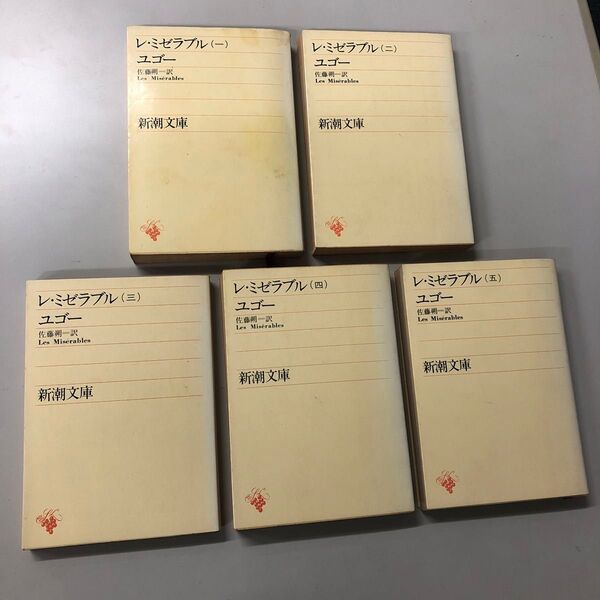 レ・ミゼラブル(一)
ユゴー
佐藤朔一訳
Les Misérables
新潮文庫
レ・ミゼラブル(二)
ユゴー
佐藤朔一訳
Les Misérables
新潮文庫
レ・ミゼラブル(三)
ユゴー
佐藤朔一訳
Les Misérables
新潮文庫
レ・ミゼラブル(四)
ユゴー
佐藤朔一訳
Les Misérables
新潮文庫
レ・ミゼラブル(五)
ユゴー
佐藤朔一訳
Les Misérables
新潮文庫